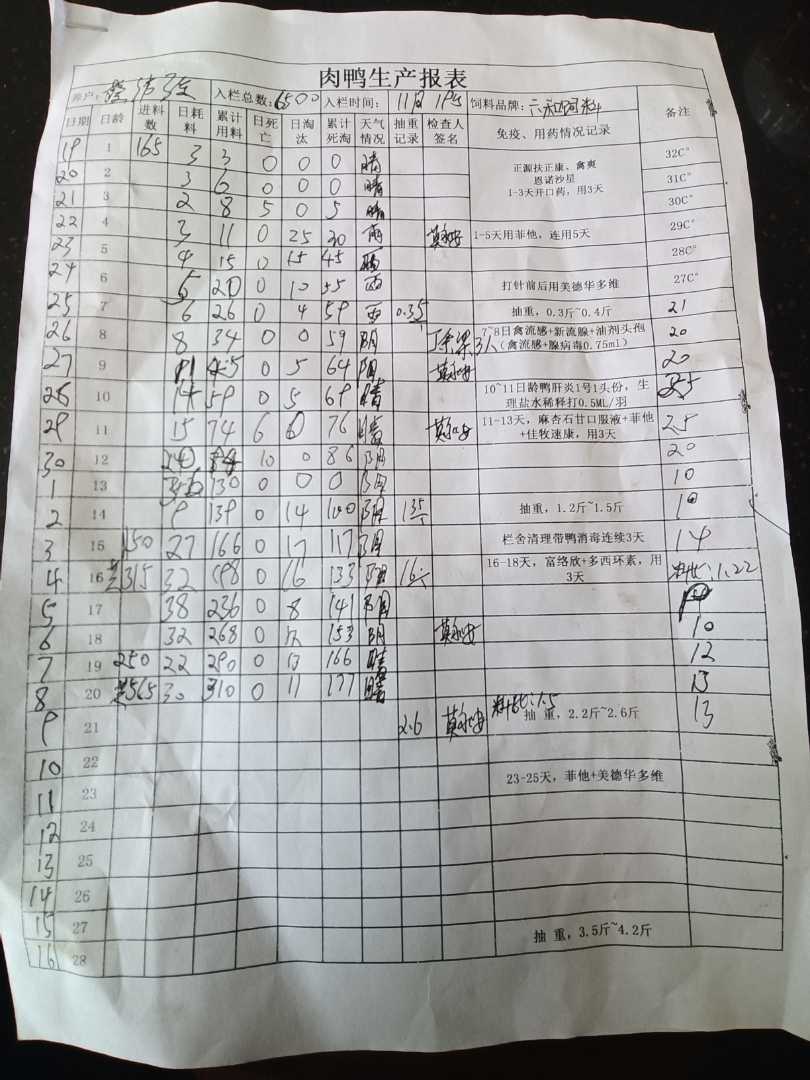 肉鸭生产报表
养户： 入栏总数：6500 入栏时间：11月19号 饲料品牌：六和饲料
日期 日龄 进料数 日耗料 累计用料 日死亡 日淘汰 累计死淘 天气情况 抽重记录 检查人签名 免疫、用药情况记录 备注
19 1 165 3 3 0 0 0 晴 正源扶正康、禽爽 32C°
20 2 3 6 0 0 0 晴 恩诺沙星 31C°
21 3 2 8 5 0 5 晴 1-3天开口药，用3天 30C°
22 4 3 11 0 25 30 雨 1-5天用菲他，连用5天 29C°
23 5 4 15 0 15 45 28C°
24 6 5 20 0 10 55 雨 打针前后用美德华多维 27C°
25 7 6 26 0 4 59 雨 0.35 抽重，0.3斤~0.4斤 21
26 8 8 34 0 0 59 阴 7~8日禽流感+新流腺+油剂头孢（禽流感+腺病毒0.75ml） 20
27 9 11 45 0 5 64 阴 20
28 10 14 59 0 5 69 晴 10~11日龄鸭肝炎1号1头份，生理盐水稀释打0.5ML/羽
29 11 15 74 6 0 76 晴 11-13天，麻杏石甘口服液+菲他+佳牧速康，用3天 25
30 12 10 0 86 阴 20
1 13 130 0 0 0 阴 10
2 14 9 139 0 14 100 阴 135 抽重，1.2斤~1.5斤 10
3 15 150 27 166 0 17 117 阴 栏舍清理带鸭消毒连续3天 14
4 16 315 32 198 0 16 133 阴 16 16-18天，富络欣+多西环素，用3天 料比:1.22
5 17 38 236 0 8 141 阴
6 18 32 268 0 12 153 阴 10
7 19 250 22 290 0 13 166 晴 12
8 20 565 30 310 0 11 177 晴 13
9 21 2.6 料比:1.5 抽 重，2.2斤~2.6斤 13
10 22
11 23 23-25天，菲他+美德华多维
12 24
13 25
14 26
15 27 抽 重，3.5斤~4.2斤
16 28